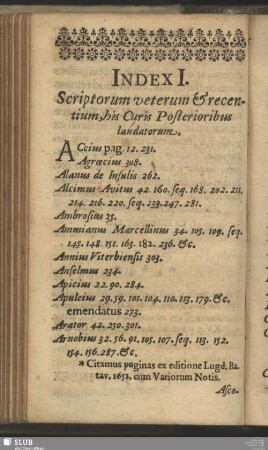 INDEX I.
Scriptorum veterum & recen-
tium, his Curis Posterioribus
laudatorum.
ACcius pag. 12. 231.
Agrœcius 308.
Alanus de Insulis 262.
Alcimus Avitus 42. 160. seq. 168. 202. 211.
214. 216. 220. seq. 233. 247. 281.
Ambrosius 35.
Ammianus Marcellinus 34. 105. 109. seq.
145. 148. 151. 163. 182. 236. &c.
Annius Viterbiensis 303.
Anselmus 234.
Apicius 22. 90. 284.
Apuleius 29. 59. 101. 104. 110. 113. 179. &c.
emendatus 273.
Arator 42. 250. 301.
Arnobius 32. 56. 91. 105. 107. seq. 113. 152.
154. 156. 287. &c.
* Citamus paginas ex editione Lugd. Ba-
tav. 1651. cum Variorum Notis.
Asco-
SLUB